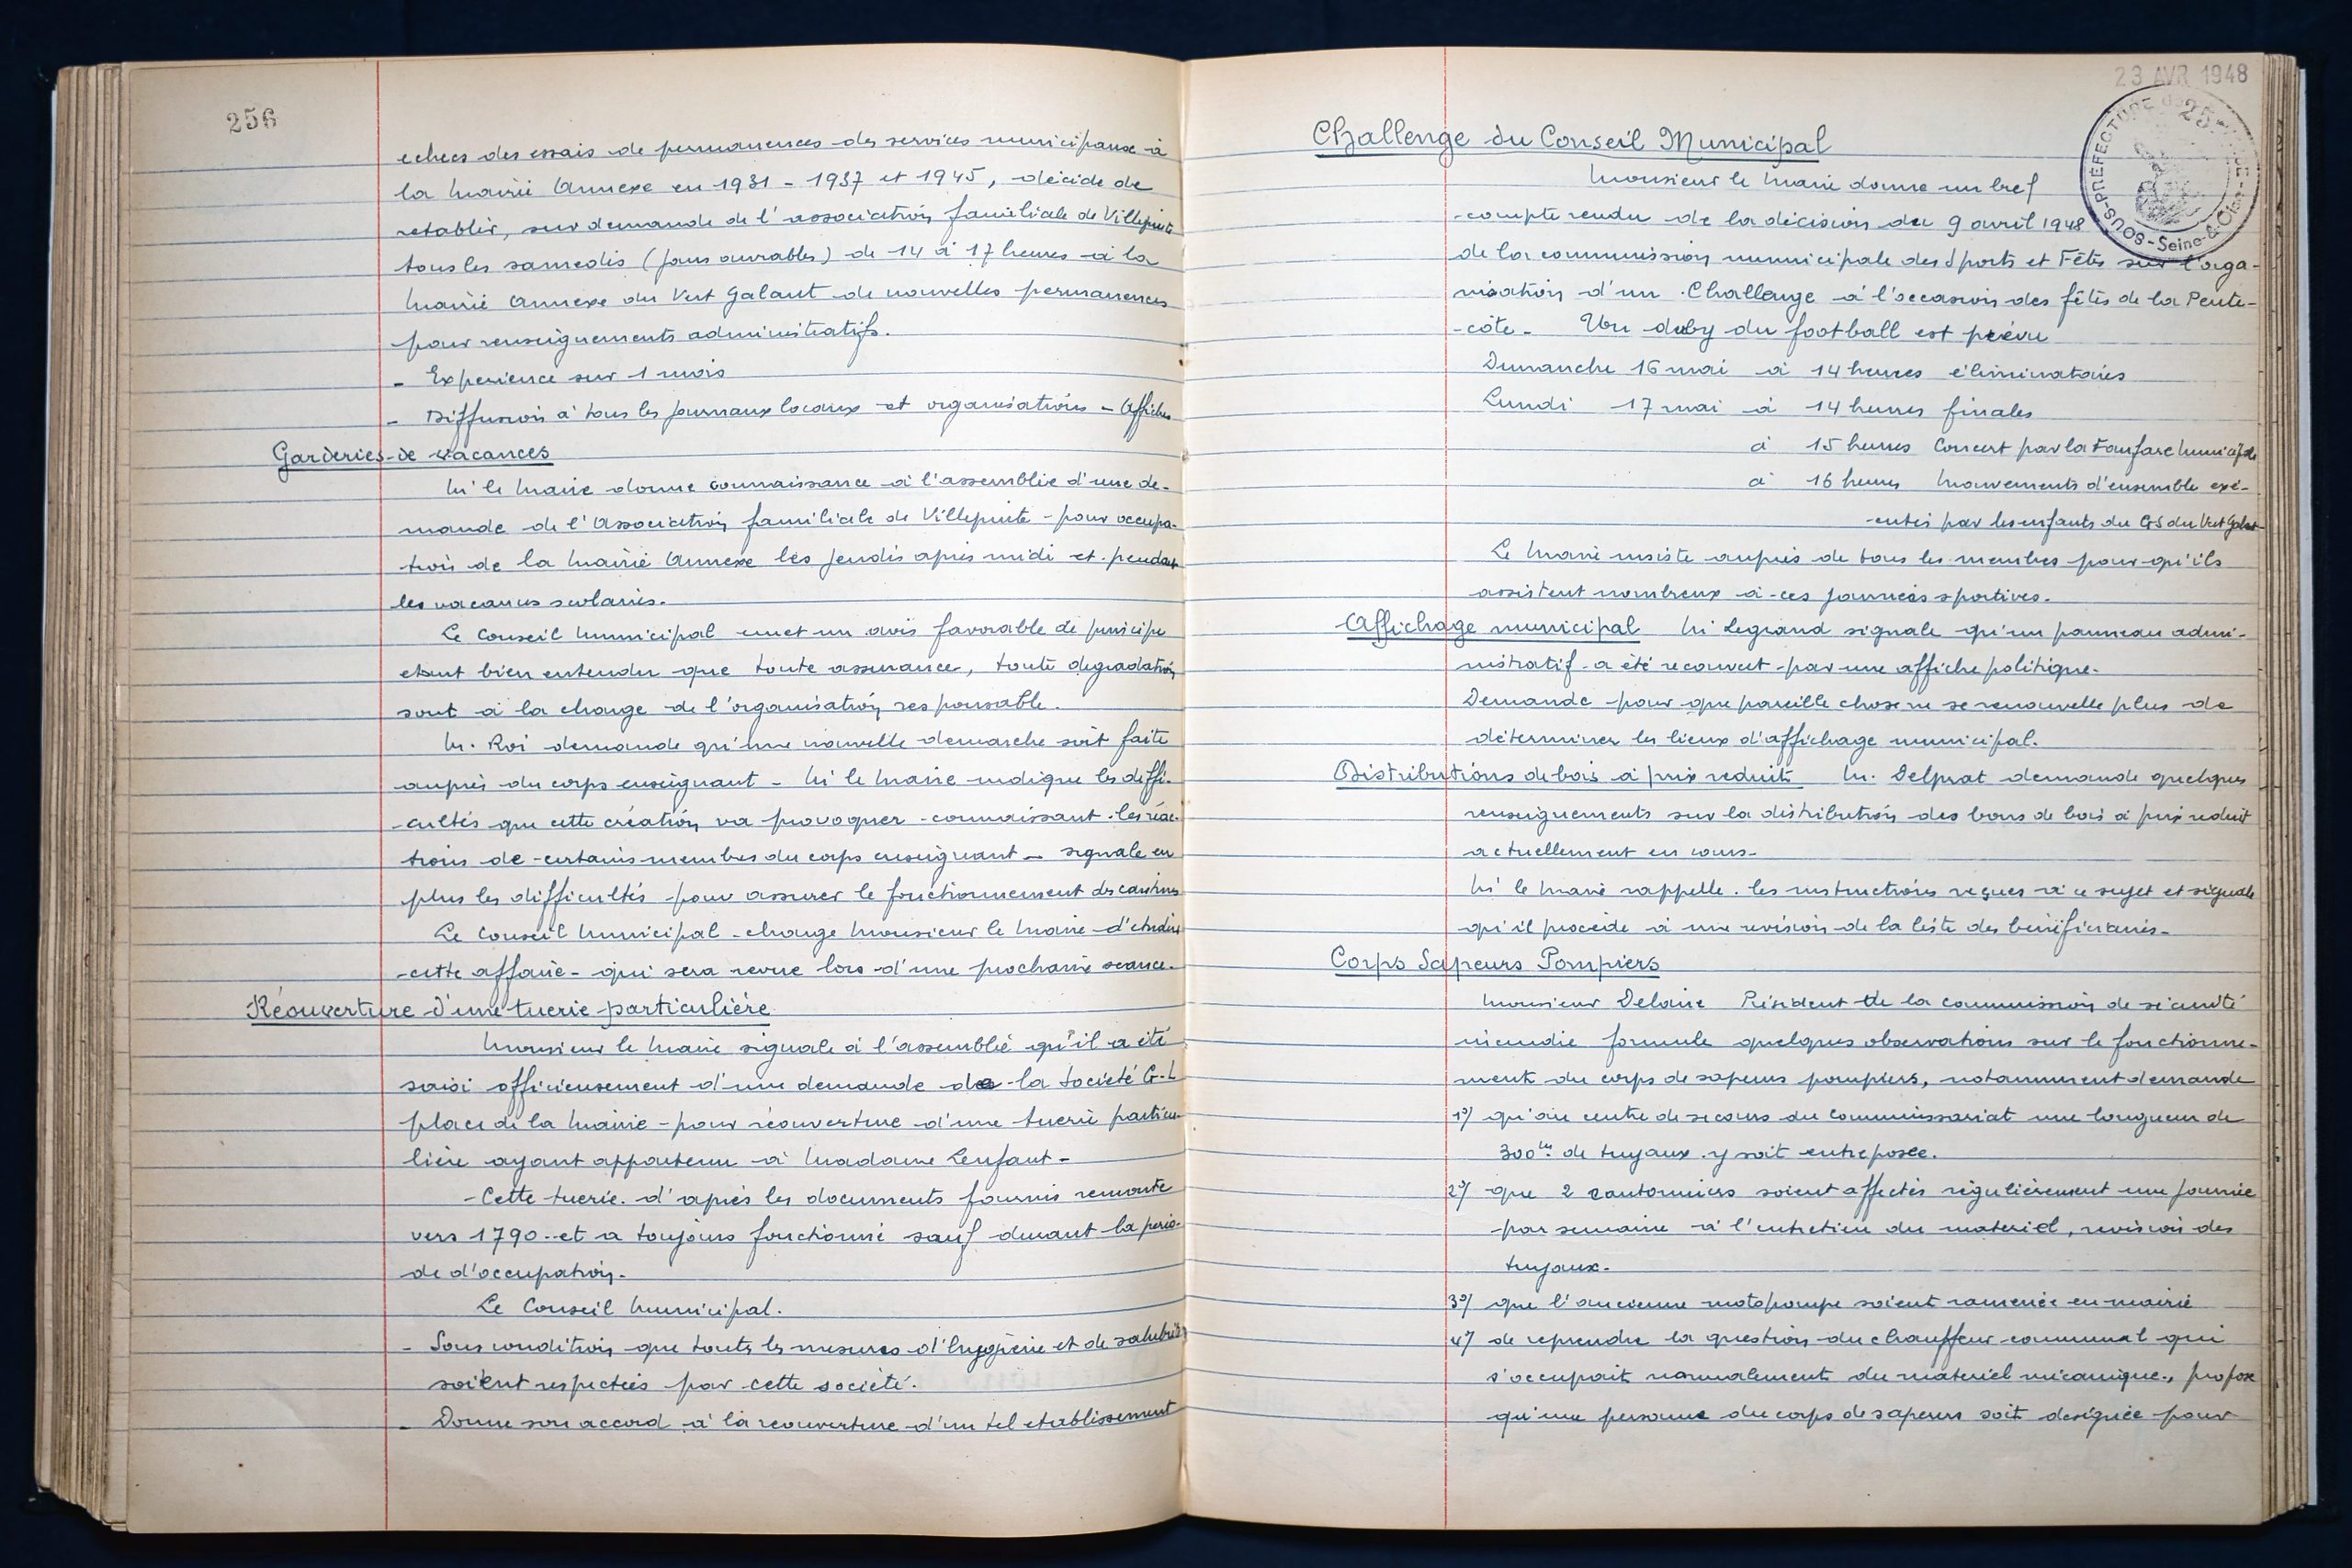 256
echecs des essais de permanences des services municipaux à
la Mairie Annexe en 1931 - 1937 et 1945, décide de
retablir, sur demande de l'association familiale de Villepinte
tous les samedis (jours ouvrables) de 14 à 17 heures à la
Mairie Annexe du Vert Galant de nouvelles permanences
pour renseignements administratifs.
- Experience sur 1 mois
- Diffusion à tous les journaux locaux et organisations - Affiches
Garderies de vacances
Mr le Maire donne connaissance à l'assemblée d'une de-
mande de l'Association familiale de Villepinte - pour occupa-
tion de la Mairie Annexe les jeudis après midi et pendant
les vacances scolaires.
Le Conseil Municipal emet un avis favorable de principe
etant bien entendu que toute assurance, toute degradation
sont à la charge de l'organisation responsable.
M. Roi demande qu'une nouvelle demarche soit faite
auprès du corps enseignant - Mr le Maire indique les diffi-
cultés que cette création va provoquer connaissant les réac-
tions de certains membres du corps enseignant - signale en
plus les difficultés pour assurer le fonctionnement des cantines
Le Conseil Municipal charge Monsieur le Maire d'etudier
cette affaire - qui sera revue lors d'une prochaine seance.
Réouverture d'une tuerie particulière
Monsieur le Maire signale à l'assemblée qu'il a été
saisi officieusement d'une demande de la Societé G-L
place de la Mairie - pour réouverture d'une tuerie particu-
lière ayant appartenu à Madame Lenfant -
Cette tuerie d'après les documents fournis remonte
vers 1790 et a toujours fonctionné sauf durant la perio-
de d'occupation.
Le Conseil Municipal.
- Sous condition que toutes les mesures d'hygiène et de salubrité
soient respectées par cette société.
- Donne son accord à la reouverture d'un tel etablissement
23 AVR 1948
SOUS-PRÉFECTURE
Seine-&-Oise
Challenge du Conseil Municipal
Monsieur le Maire donne un bref
compte rendu de la décision du 9 avril 1948
de la commission municipale des Sports et Fêtes sur l'orga-
nisation d'un Challenge à l'occasion des fêtes de la Pente-
-côte - Un derby du football est prévu
Dimanche 16 mai à 14 heures éliminatoires
Lundi 17 mai à 14 heures finales
à 15 heures Concert par la Fanfare Municipale
à 16 heures Mouvements d'ensemble exé-
cutés par les enfants du GS du Vert Galant
Le Maire insiste auprès de tous les membres pour qu'ils
assistent nombreux à ces journées sportives.
Affichage municipal Mr Legrand signale qu'un panneau admi-
nistratif a été recouvert par une affiche politique.
Demande pour que pareille chose ne se renouvelle plus de
déterminer les lieux d'affichage municipal.
Distributions de bois à prix reduit M. Delprat demande quelques
renseignements sur la distribution des bons de bois à prix reduit
actuellement en cours -
Mr le Maire rappelle les instructions reçues à ce sujet et signale
qu'il procède à une revision de la liste des bénéficiaires -
Corps Sapeurs Pompiers
Monsieur Delaire Président de la commission de sécurité
incendie formule quelques observations sur le fonctionne-
ment du corps de sapeurs pompiers, notamment demande
1°/ qu'au centre de secours du commissariat une longueur de
300 m de tuyaux y soit entreposée.
2°/ que 2 cantonniers soient affectés régulièrement une journée
par semaine à l'entretien du materiel, revision des
tuyaux.
3°/ que l'ancienne motopompe soient ramenée en mairie
4°/ de reprendre la question du chauffeur communal qui
s'occupait normalement du matériel mécanique, propose
qu'une personne du corps de sapeurs soit designée pour